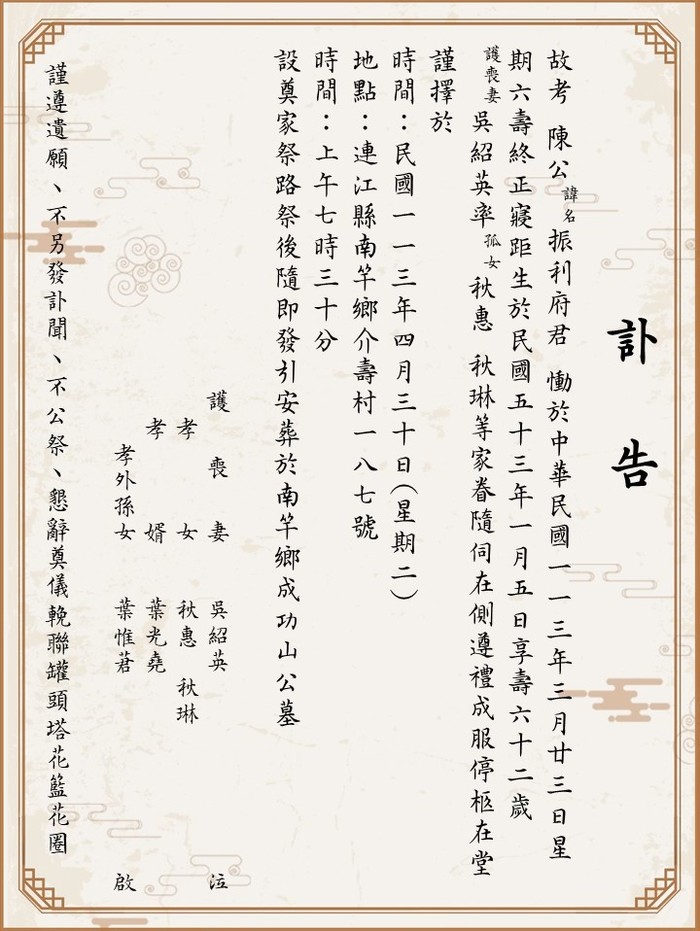 訃告
故考 陳公諱名振利府君 慟於中華民國一一三年三月廿三日星
期六壽終正寢距生於民國五十三年一月五日享壽六十二歲
護喪妻吳紹英率孤女秋惠 秋琳等家眷隨伺在側遵禮成服停柩在堂
謹擇於
時間：民國一一三年四月三十日(星期二)
地點：連江縣南竿鄉介壽村一八七號
時間：上午七時三十分
設奠家祭路祭後隨即發引安葬於南竿鄉成功山公墓
護喪妻 吳紹英 泣
孝女 秋惠 秋琳
孝婿 葉光堯
孝外孫女 葉惟莙 啟
謹遵遺願、不另發訃聞、不公祭、懇辭奠儀輓聯罐頭塔花籃花圈